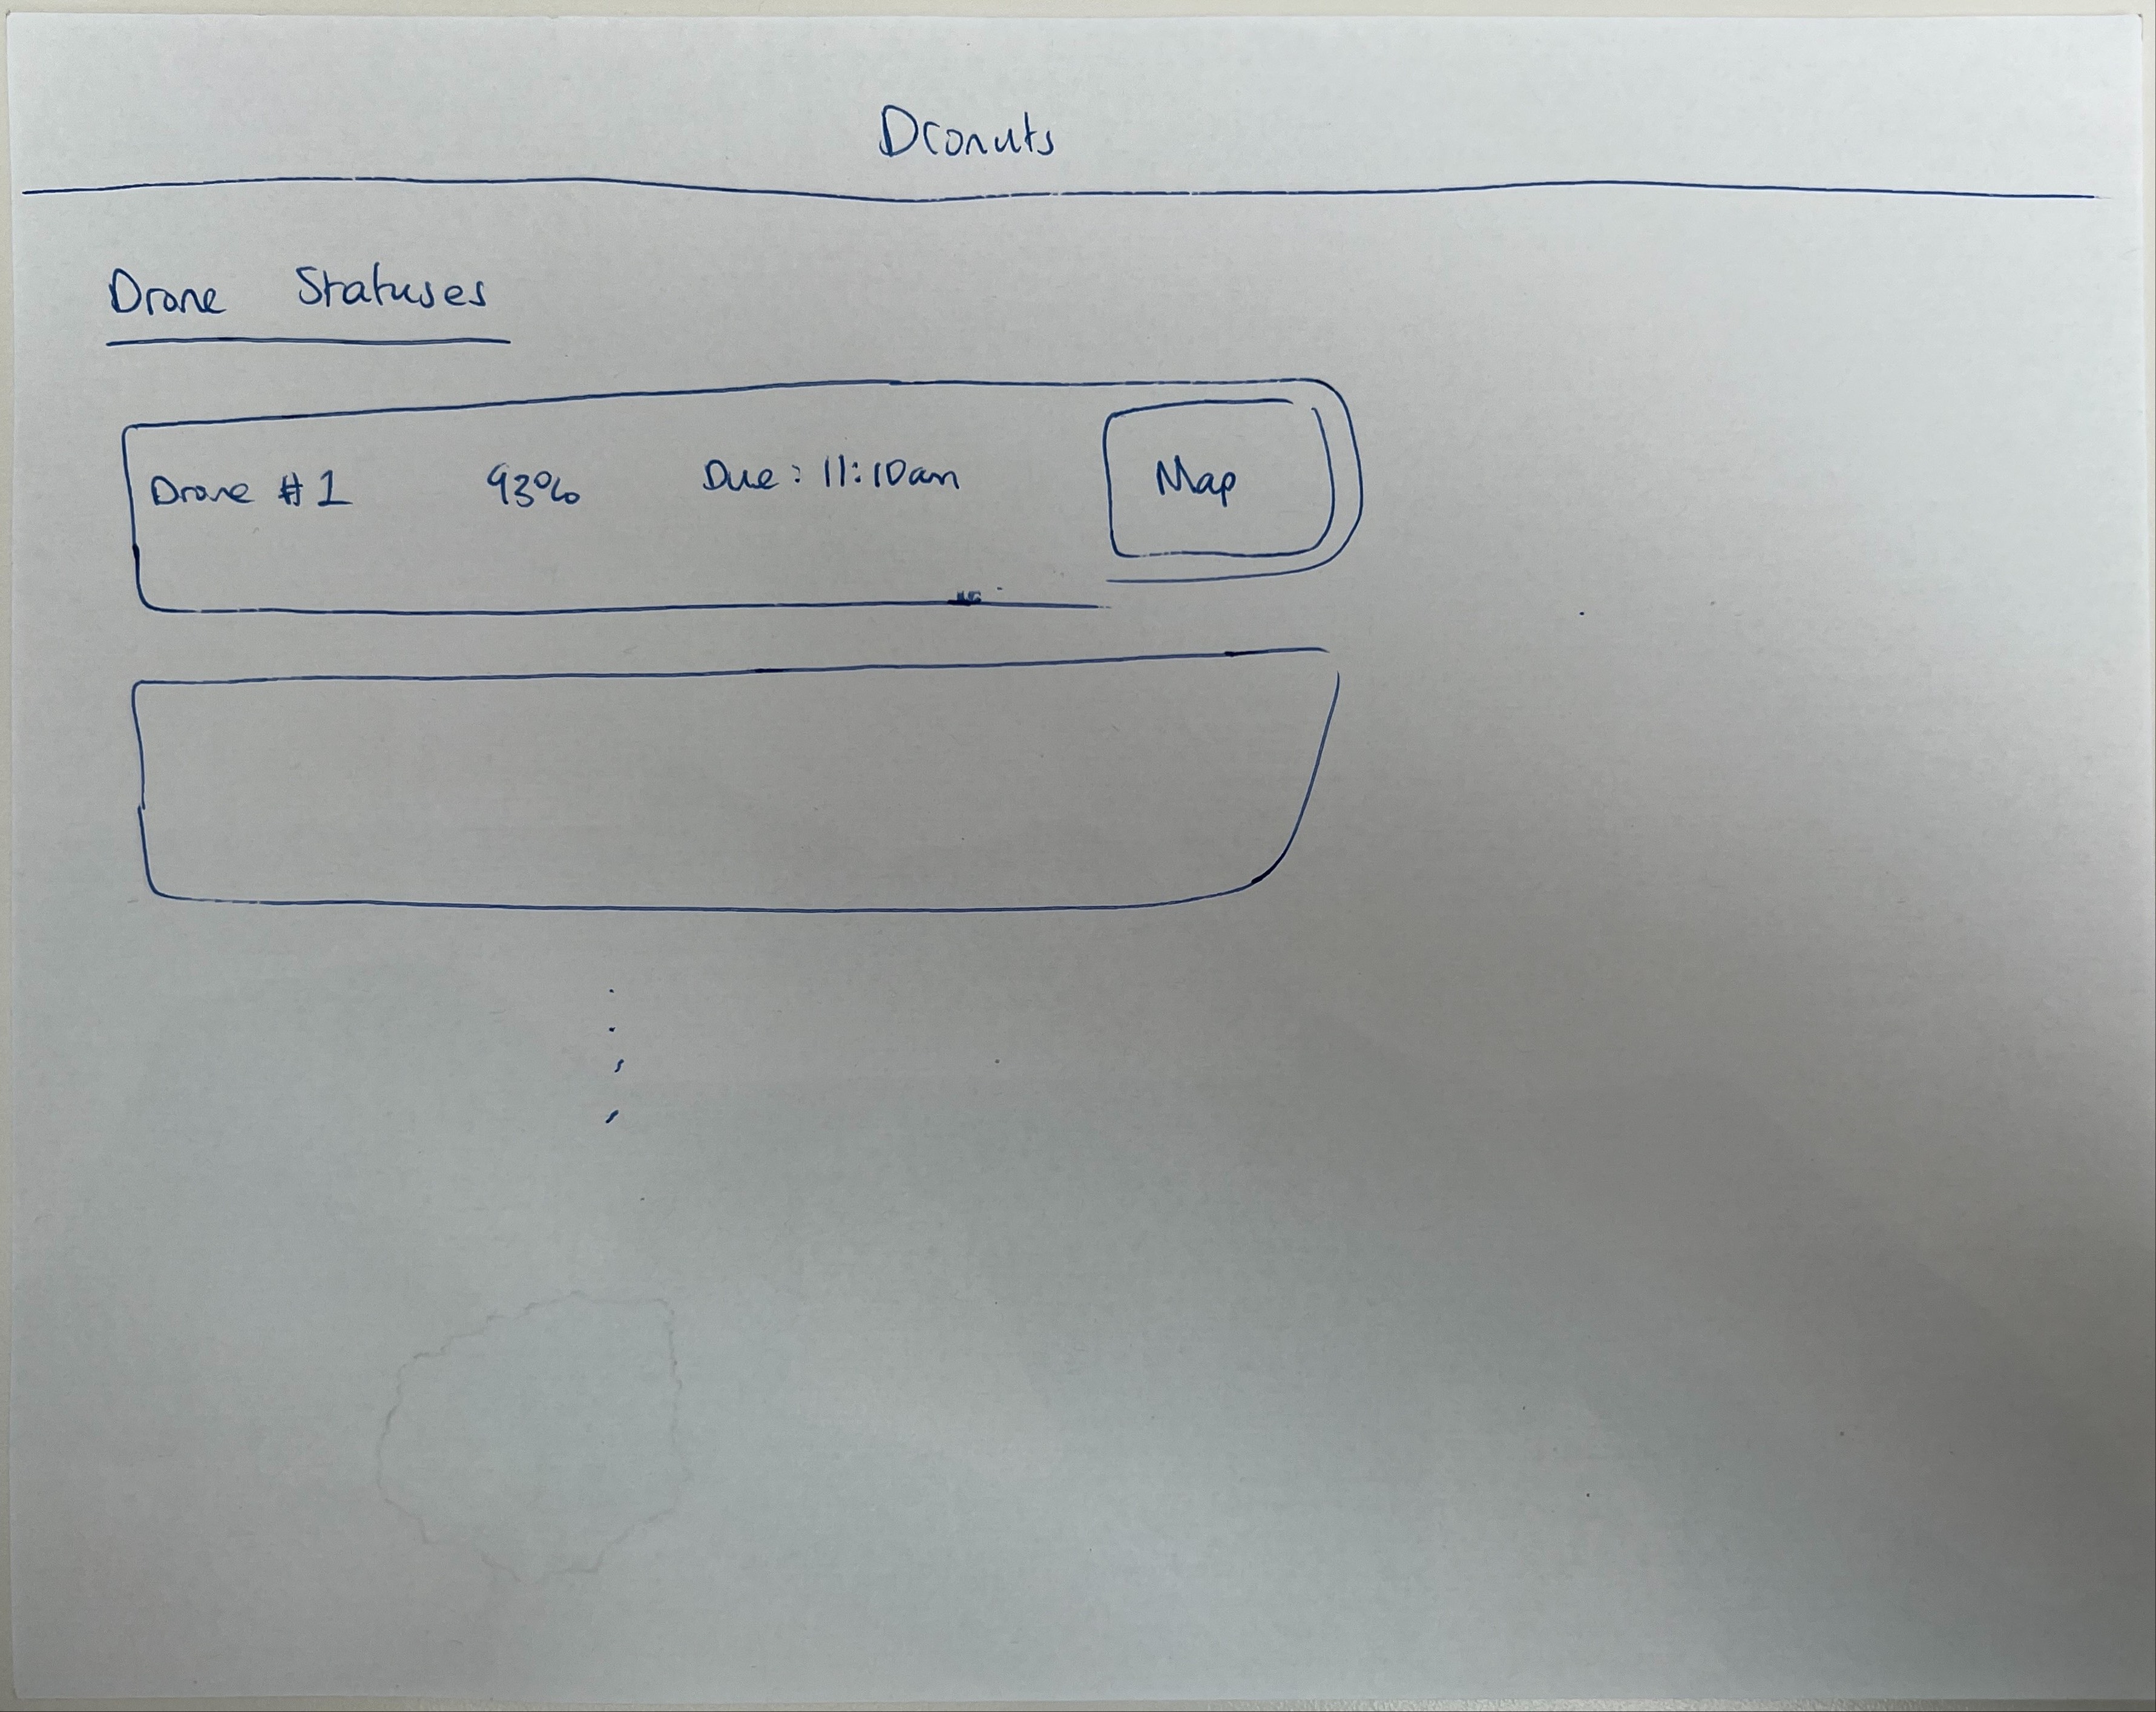 Dronuts
Drone Statuses
Drone #1 93% Due: 11:10am Map